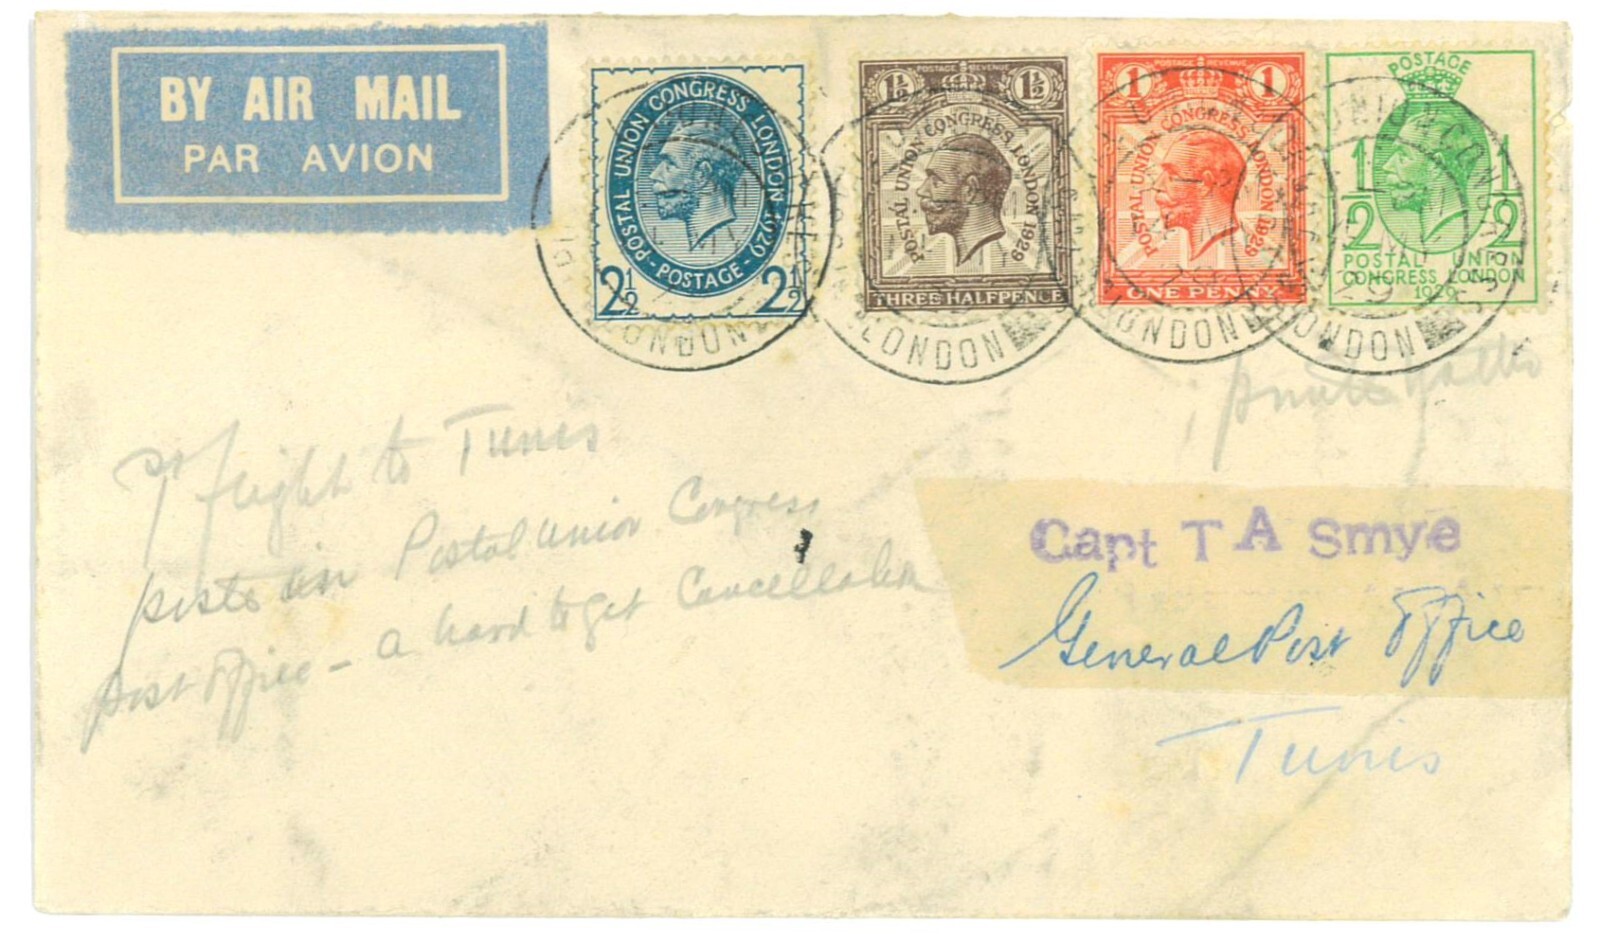 BY AIR MAIL
PAR AVION
POSTAL UNION CONGRESS LONDON 1929
POSTAGE
2½ 2½
1½ POSTAGE REVENUE 1½
POSTAL UNION CONGRESS LONDON 1929
THREE HALFPENCE
1 POSTAGE REVENUE 1
POSTAL UNION CONGRESS LONDON 1929
ONE PENNY
POSTAGE
1/2 1/2
POSTAL UNION
CONGRESS LONDON
1929
LONDON
LONDON
LONDON
LONDON
flight to Tunis
posted in Postal Union Congress
post office - a hard to get Cancellation
private
Capt T A Smye
General Post Office
Tunis